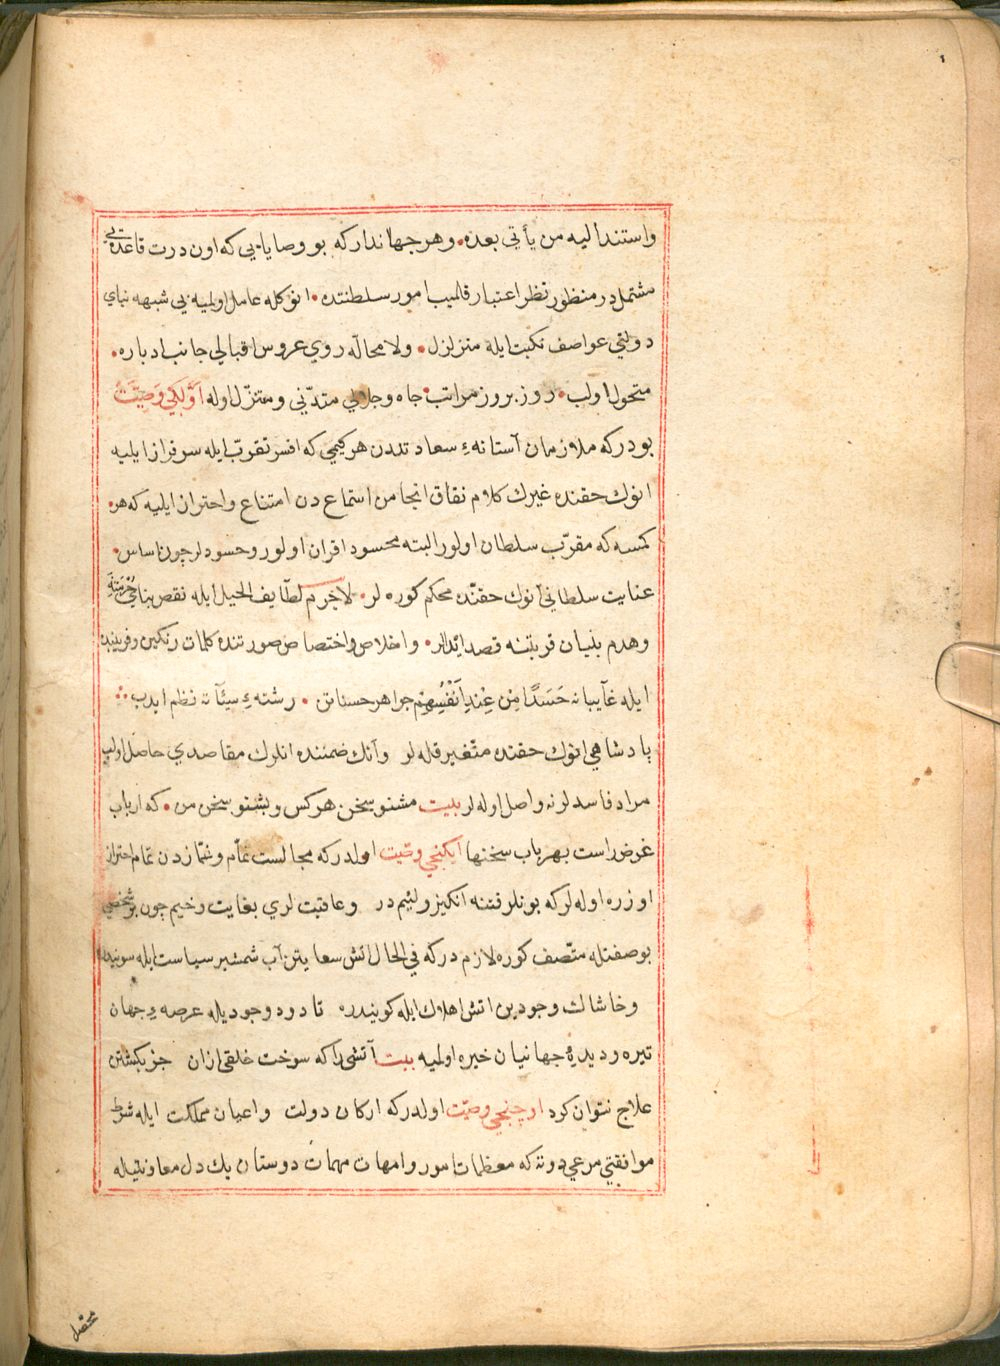 واستندا ليه من يأتى بعده وهر جهانداركه بو وصايايى كه اون درت قاعده يى
مشتملدر منظور نظر اعتبار قالميب امور سلطنتده انوكله عامل اولميه بى شبهه بناي
دولتي عواصف نكبت ايله متزلزل ولا محاله روي عروس اقبالي جانب ادباره
متحول اولب روز بروز مراتب جاه وجلالي متدني ومتنزل اوله اولكي وصيت
بودركه ملازمان آستانهء سعادتدن هر كيمي كه افسر تقرب ايله سرفراز ايليه
انوك حقنده غيرك كلام نفاق انجامن استماع دن امتناع واحتراز ايليه كه هر
كمسه كه مقرب سلطان اولور البته محسود اقران اولور وحسودلر چون اساس
عنايت سلطاني انوك حقنده محكم كوره لر لاجرم لطايف الحيل ايله نقص بناي حرمتنه
وهدم بنيان قربتنه قصد ايدرلر واخلاص واختصاص صورتنده كلمات رنكين وفريبنده
ايله غآيبانه حَسَدًا مِنْ عِنْدِ اَنْفُسِهِمْ جواهر حسناتن رشتهء سيئآته نظم ايدب
پادشاهي انوك حقنده متغير قله لر وآنك ضمننده انلرك مقاصدي حاصل اولب
مراد فاسدلرنه واصل اوله لر بيت مشنو سخن هر كس وبشنو سخن من كه ارباب
غرض راست بهر باب سخنها ايكنجي وصيت اولدركه مجالست نمام وغمازدن تمام احتراز
اوزره اوله لر كه بونلر فتنه انكيز ولئيم در وعاقبت لري بغايت وخيم چون بر شخصي
بوصفتله متصف كوره لازم دركه في الحال اتش سعايتن آب شمشير سياست ايله سوينده
وخاشاك وجودين اتش اهلاك ايله كويندره تا دود وجوديله عرصهء جهان
تيره وديدهٔ جهانيان خيره اولميه بيت آتشى را كه سوخت خلقى ازان جز بكشتن
علاج نتوان كرد اوچنجي وصيت اولدركه اركان دولت واعيان مملكت ايله شرط
موافقتي مرعي دوته كه معظمات امور وامهات مهمات دوستان يك دل معاونتيله